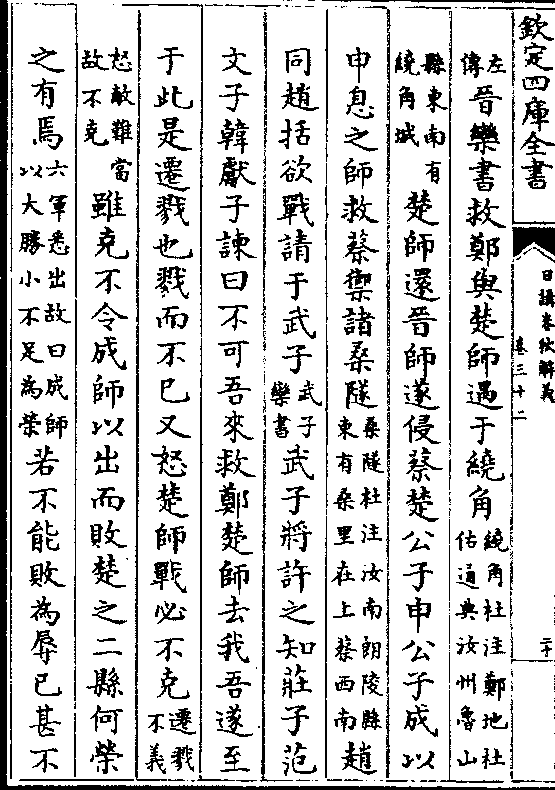 欽定四庫全書
日講春秋解義
卷三十二
二十
左傳晉欒書救鄭與楚師遇于繞角繞角杜注鄭地杜佑通典汝州魯山
縣東南有繞角城楚師還晉師遂侵蔡楚公子申公子成以
申息之師救蔡禦諸桑隧桑隧杜注汝南朗陵縣東有桑里在上蔡西南趙
同趙括欲戰請于武子武子欒書武子將許之知莊子范
文子韓獻子諫曰不可吾來救鄭楚師去我吾遂至
于此是遷戮也戮而不已又怒楚師戰必不克遷戮不義
怒敵難當故不克雖克不令成師以出而敗楚之二縣何榮
之有焉六軍悉出故曰成師以大勝小不足為榮若不能敗為辱已甚不